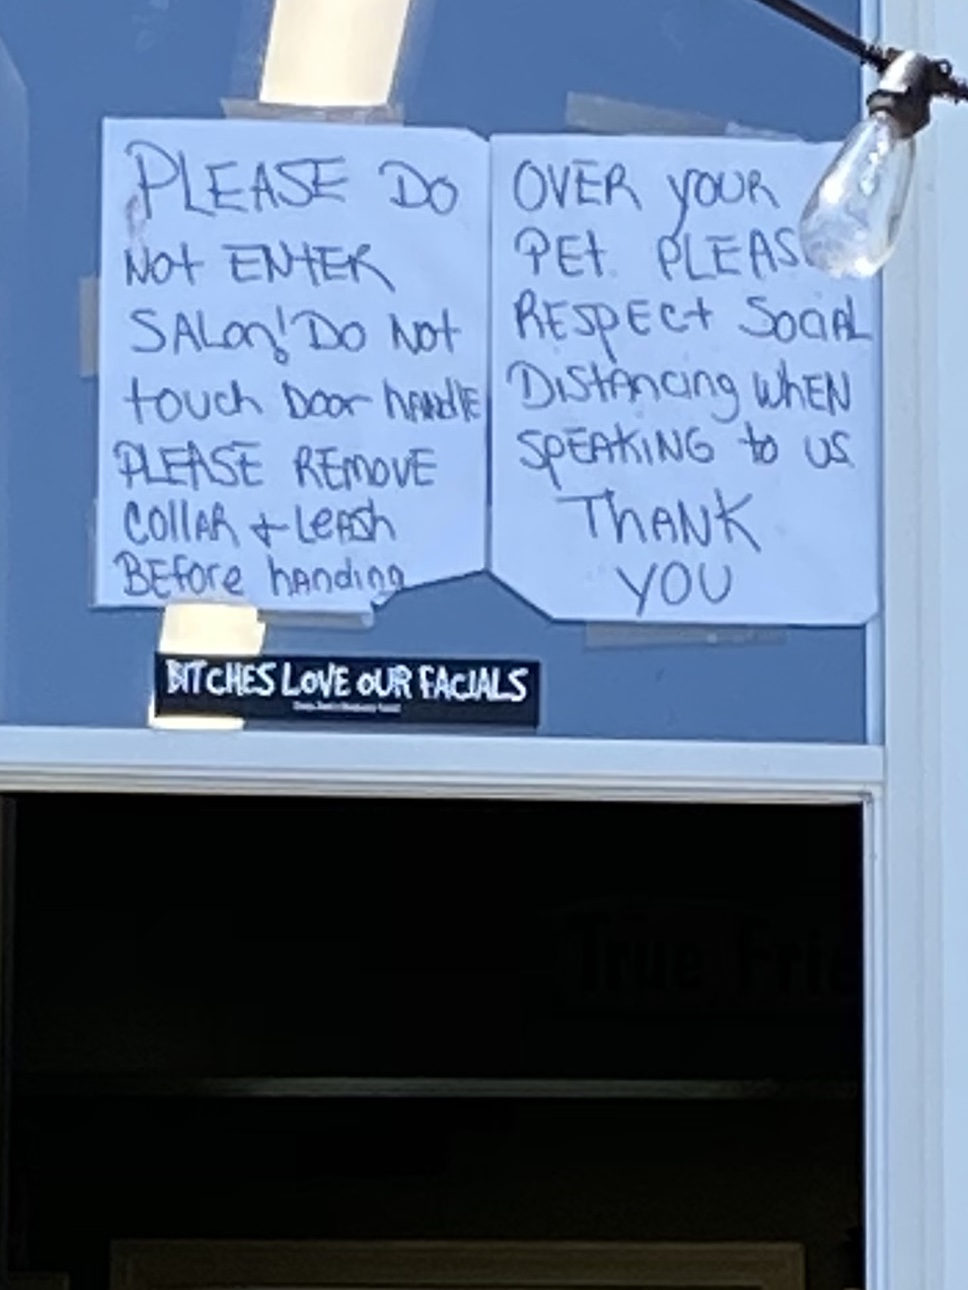 PLEASE DO
NOt ENtER
SALon! Do Not
touch Door hANdlE
PLEASE REMOVE
COllAR + LEASh
BEfore handing
OVER YOUR
PEt. PLEAS
RESpECt SociAL
DIStAncing WhEN
SPEAKING to US
ThANK
YOU
BITCHES LOVE OUR FACIALS
True Frie